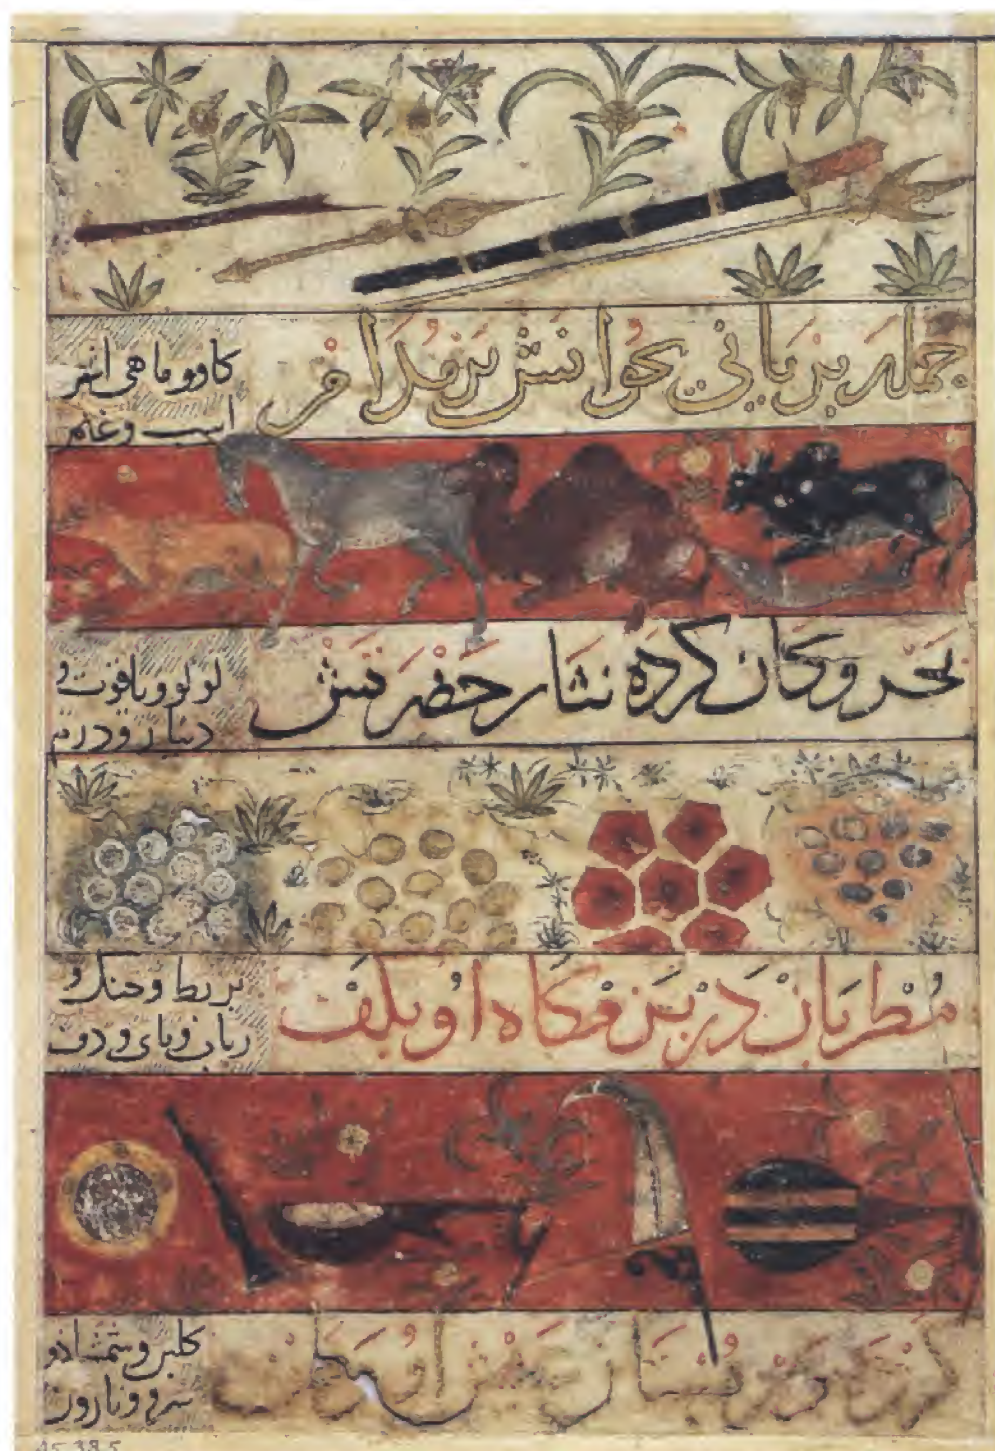 جمله بریانی بخوانش
کاو و ماهی اشتر
اسب و غنم
بحر و کان کرده نثار حضرتش
لولو و یاقوت و
دینار و درم
مطربان در بزمکاه او بکف
بربط و چنک و
رباب و نای و دف
کلبن و شمشاد و
سرو و نارون
45.385